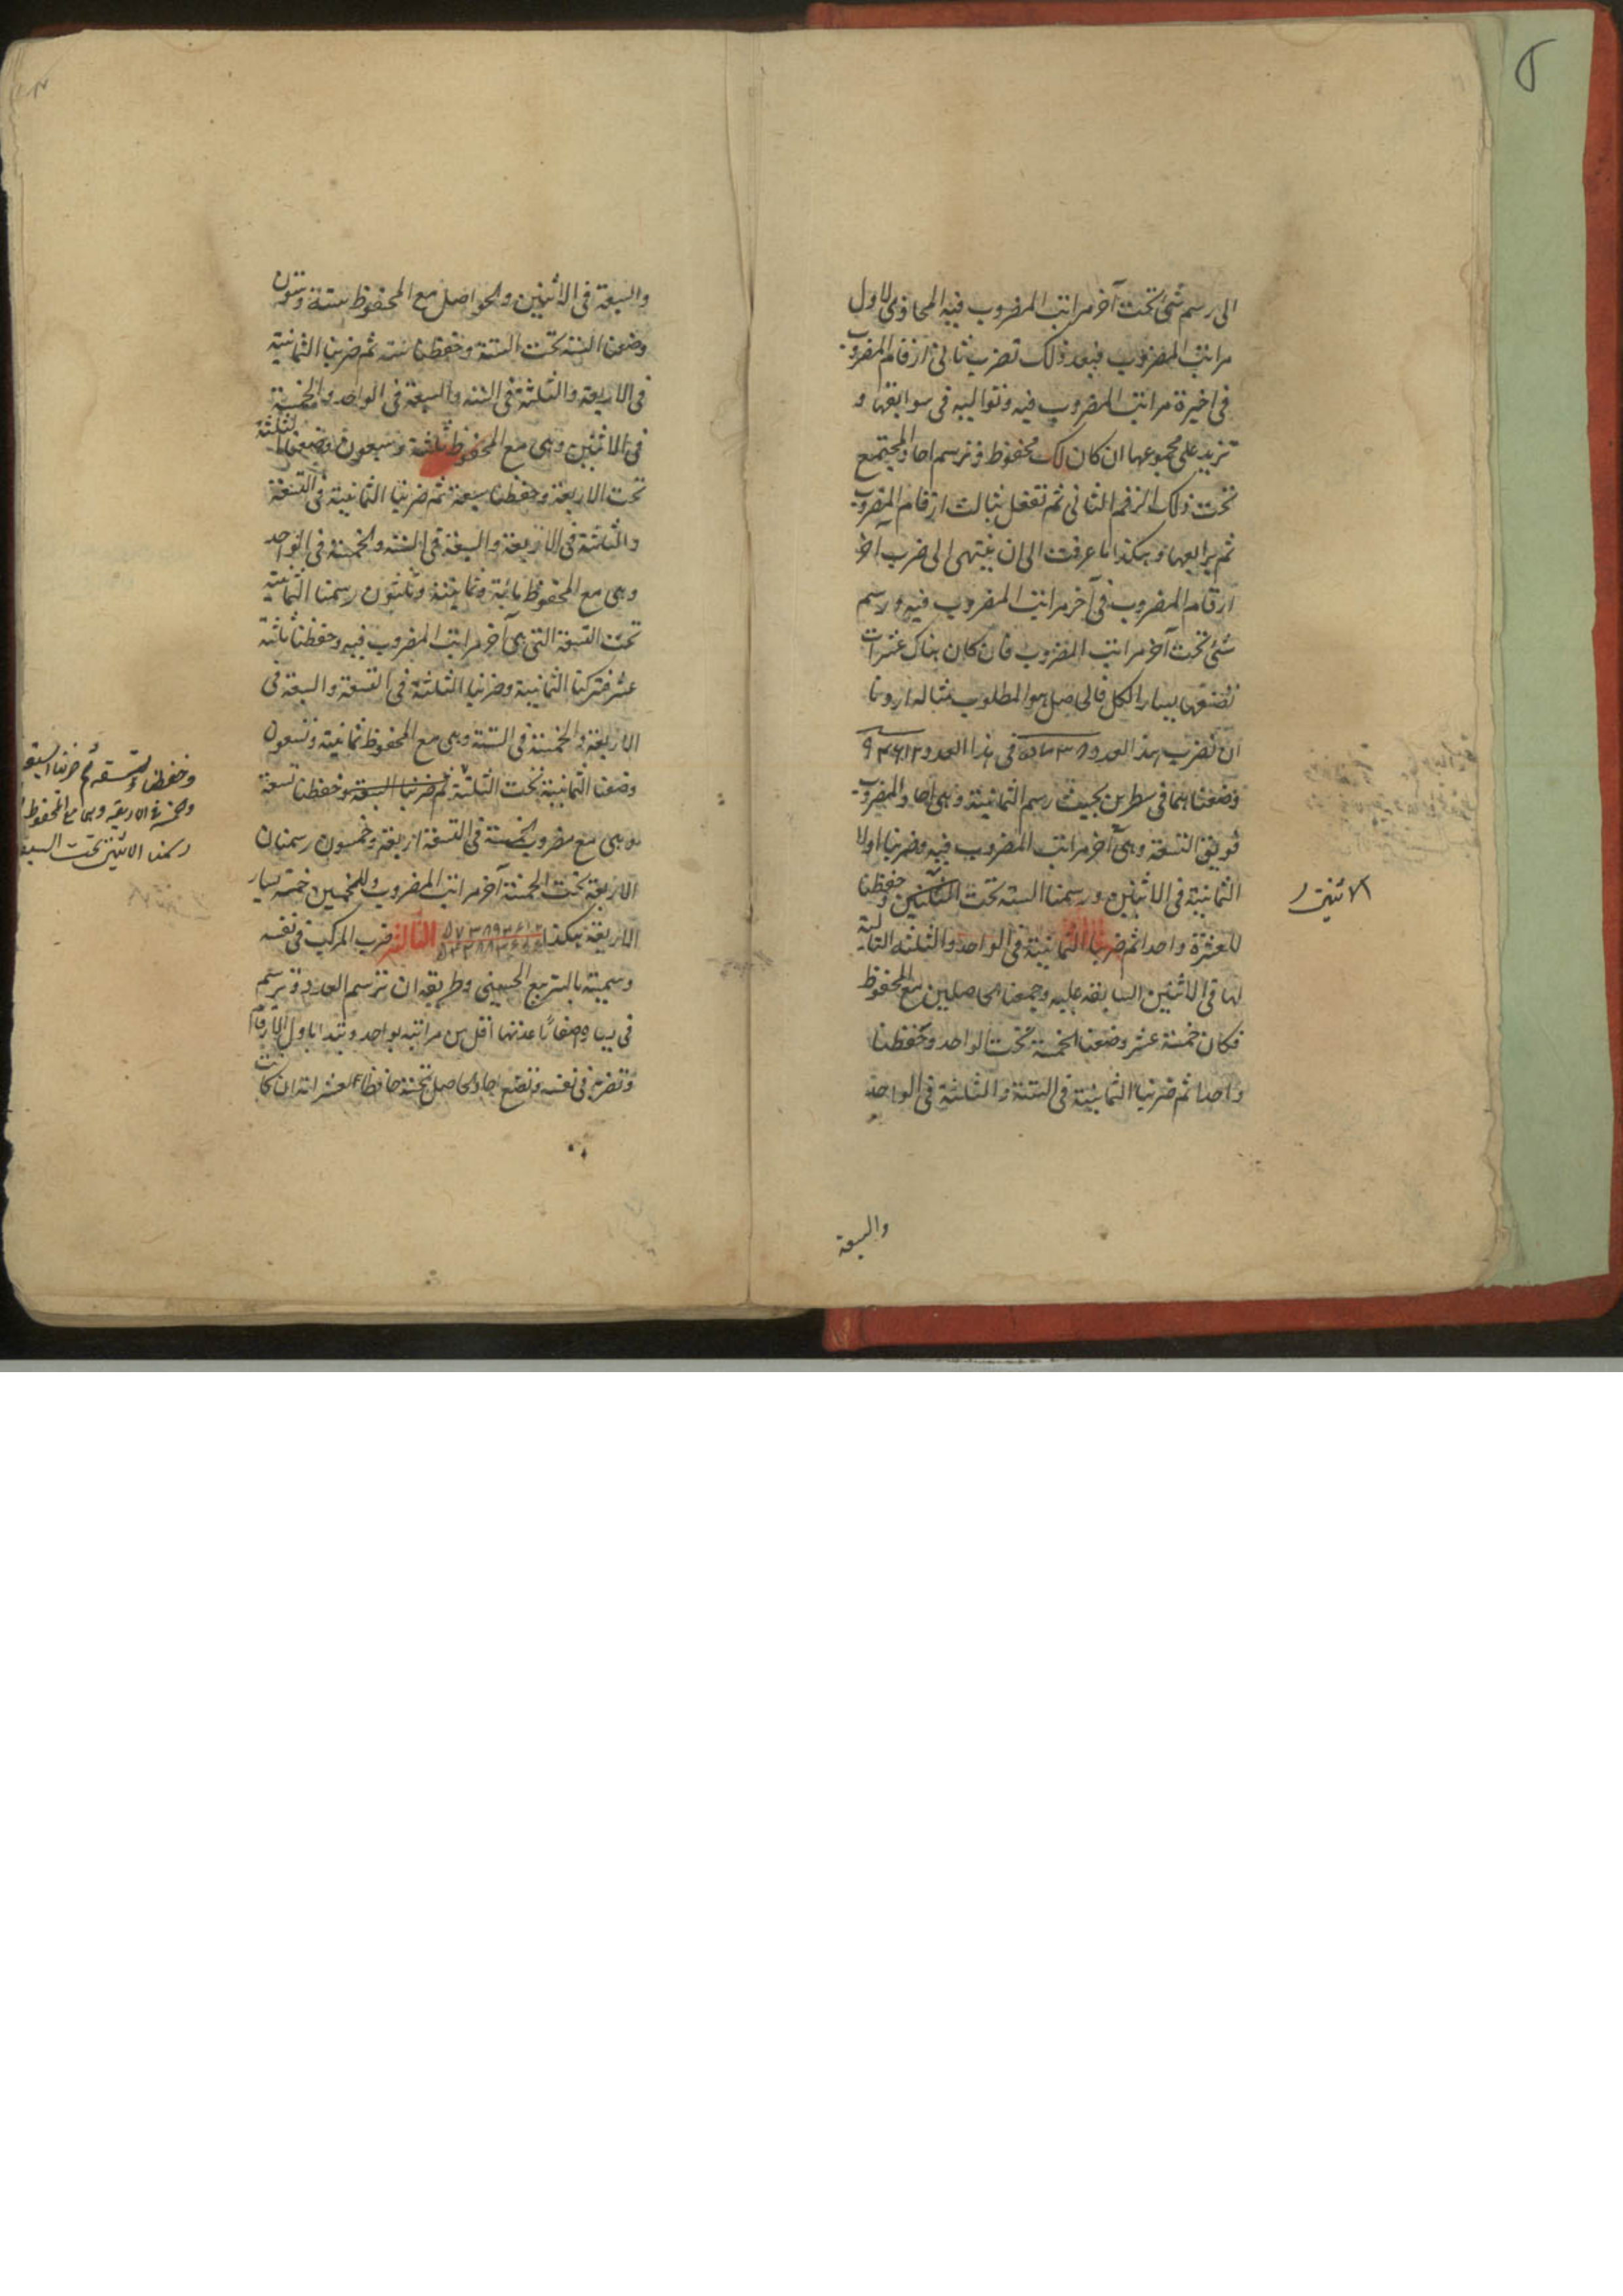 الى رسم شئ تحت آخر مراتب المضروب فيه المحاذى لاول
مراتب المضروب فبعد ذلك تضرب ثانى ارقام المضروب
فى اخيرة مراتب المضروب فيه وتواليه فى سوابقها و
تزيد على مجموعها ان كان لك محفوظ وترسم احاد المجتمع
تحت ذلك الرقم الثانى ثم تفعل بثالث ارقام المضروب
ثم برابعها وهكذا ما عرفت الى ان ينتهى الى ضرب آخر
ارقام المضروب فى آخر مراتب المضروب فيه ورسم
شئ تحت آخر مراتب المضروب فان كان هناك عشرات
تضعها يسار الكل فالحاصل هو المطلوب مثاله اردنا
ان نضرب هذا العدد ٥٧٣٨ فى هذا العدد ٩٣٤٦١٢
وضعناهما فى سطرين بحيث رسم الثمانية وهى احاد المضروب
فويق التسعة وهى آخر مراتب المضروب فيه وضربنا اولا
الثمانية فى الاثنين ورسمنا الستة تحت وحفظنا
للعشرة واحدا ثم ضربنا الثمانية فى الواحد والثلثة التالية
لها فى الاثنين السابقه عليه وجمعنا الحاصلين مع المحفوظ
فكان خمسة عشر وضعنا الخمسة تحت الواحد وحفظنا
واحدا ثم ضربنا الثمانية فى الستة والثلثة فى الواحد
والسبعة
الاثنين
والسبعة فى الاثنين والحواصل مع المحفوظ ستة وستون
وضعنا الستة تحت الستة وحفظنا ستة ثم ضربنا الثمانية
فى الاربعة والثلثة فى الستة والسبعة فى الواحد والخمسة
فى الاثنين وهى مع المحفوظ ثلثة وسبعون وضعنا الثلثة
تحت الاربعة وحفظنا سبعة ثم ضربنا الثمانية فى التسعة
والثلثة فى الاربعة والسبعة فى الستة والخمسة فى الواحد
وهى مع المحفوظ مائة وثمانية وثلثون رسمنا الثمانية
تحت التسعة التى هى آخر مراتب المضروب فيه وحفظنا ثلثة
عشر فتركنا الثمانية وضربنا الثلثة فى التسعة والسبعة فى
الاربعة والخمسة فى الستة وهى مع المحفوظ ثمانية وتسعون
وضعنا الثمانية تحت الثلثة ثم ضربنا السبعة وحفظنا تسعة
وهى مع مضروب الخمسة فى التسعة اربعة وخمسون رسمنا
الاربعة تحت الخمسة آخر مراتب المضروب وللخمسين خمسة يسار
الاربعة هكذا الثالث ضرب المركب فى نفسه
وسميته بالتربيع الحسينى وطريقه ان ترسم العدد وترسم
فى اقل من مراتبه بواحد وتبدا باول الارقام
وتضربه فى نفسه وتضع احاد الحاصل تحته حافظا لعشراته ان كانت
وحفظنا تسعة ثم ضربنا السبعة
وخمسة فى الاربعة وهى مع المحفوظ
رسمنا الاثنين تحت السبعة